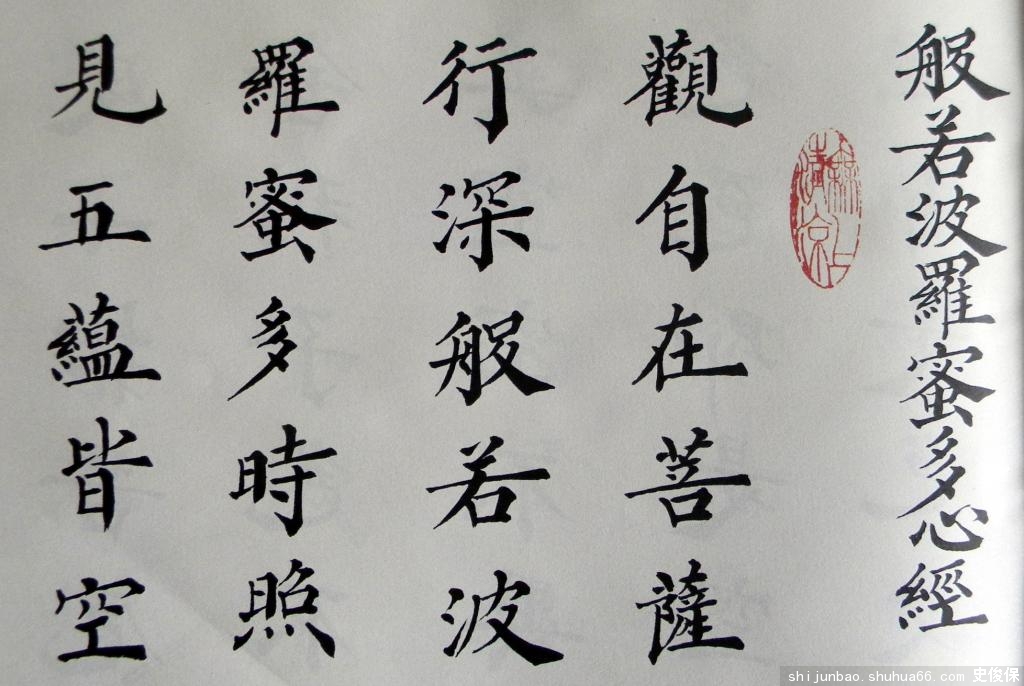 般若波羅蜜多心經
觀自在菩薩
行深般若波
羅蜜多時照
見五蘊皆空
shijunbao.shuhua66.com 史俊保